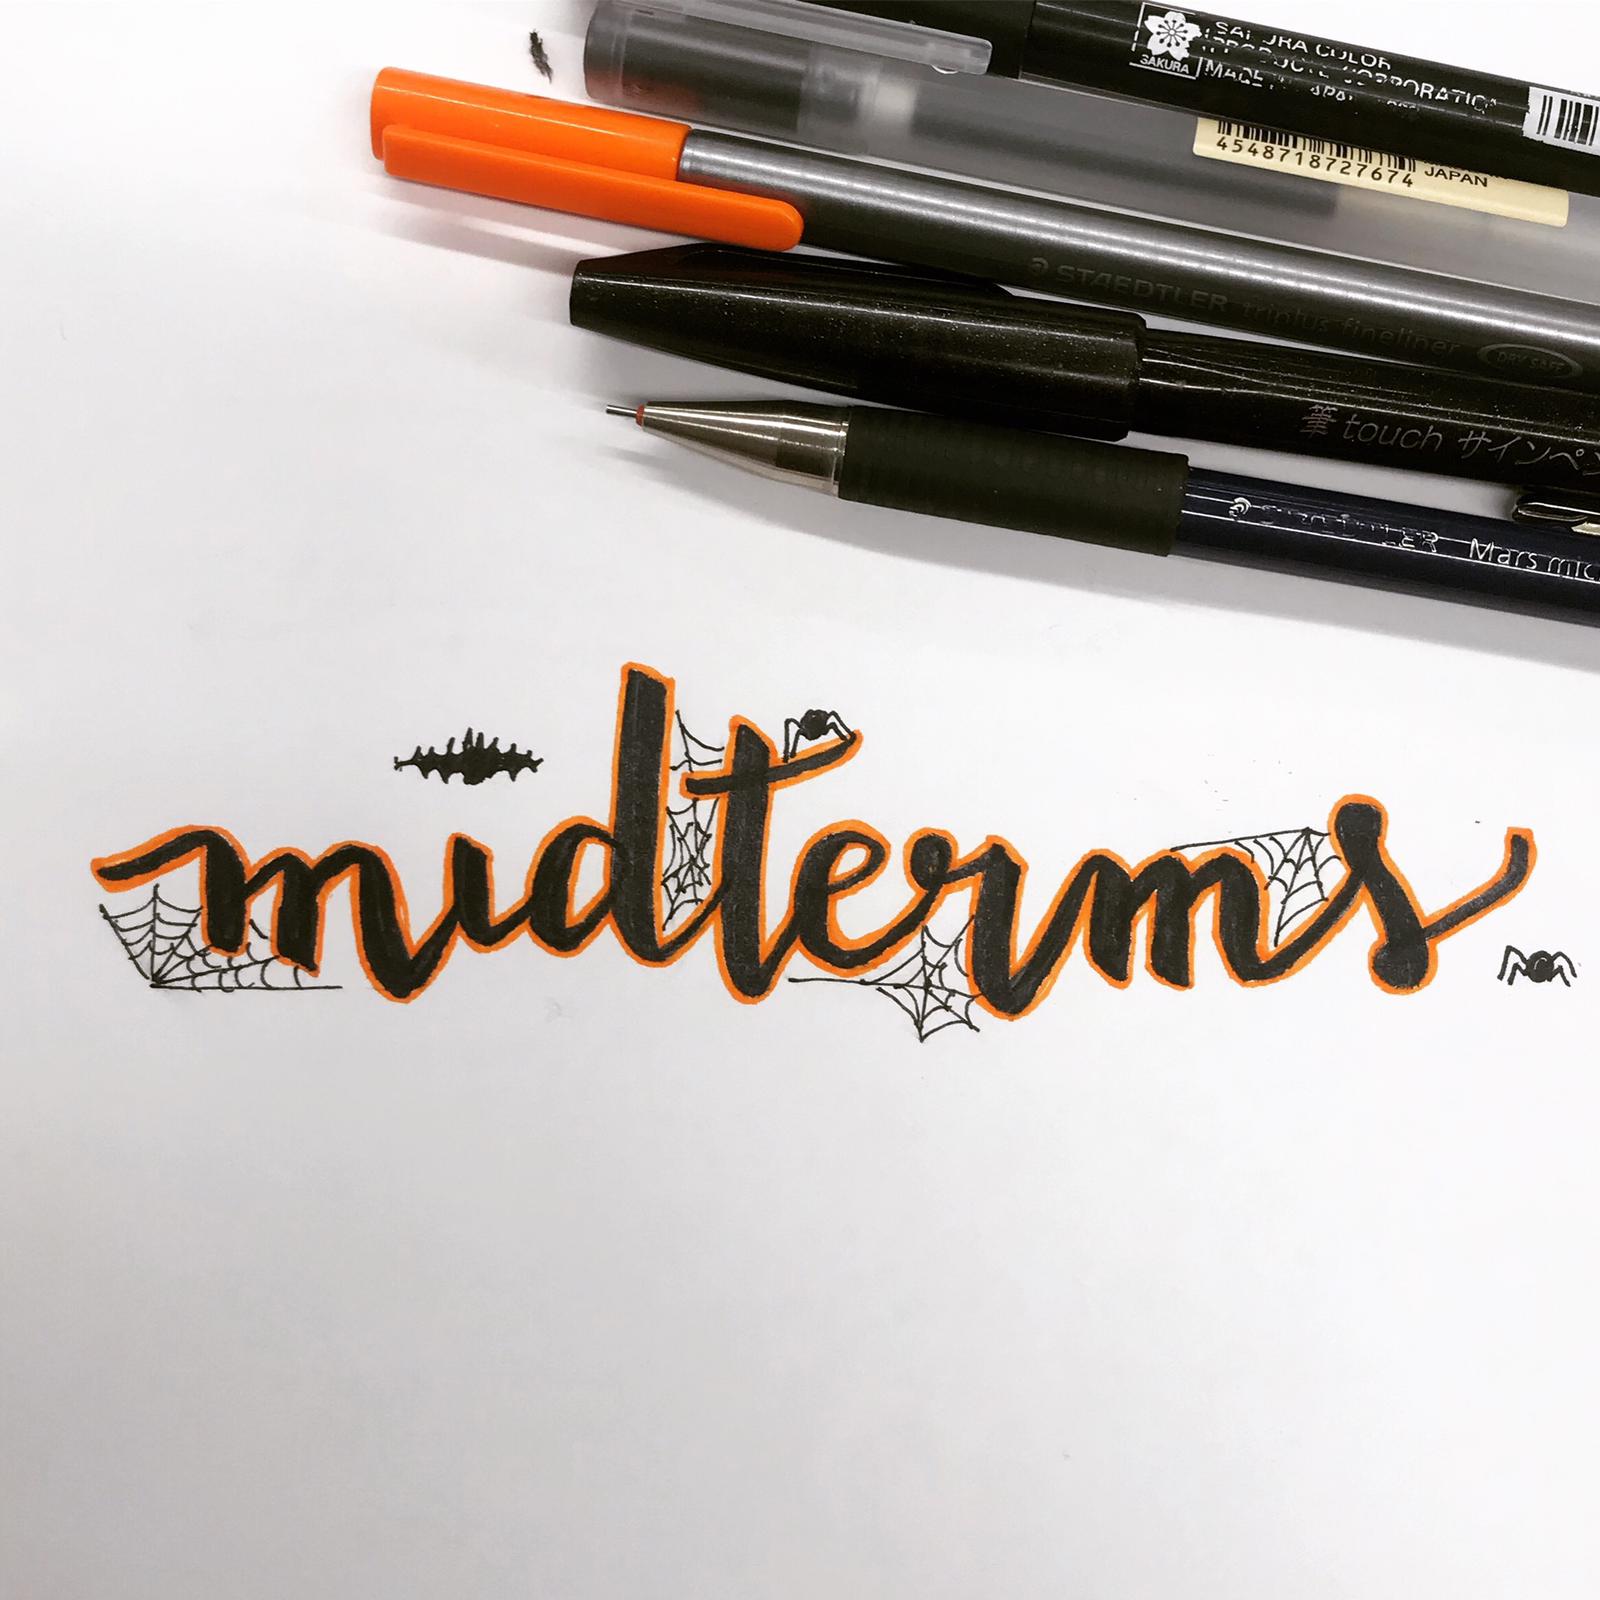 SAKURA COLOR
PRODUCTS CORPORATION
SAKURA
MADE IN JAPAN
4548718727674
JAPAN
STAEDTLER triplus fineliner
DRY SAFE
筆touch サインペン
STAEDTLER Mars mic
midterms